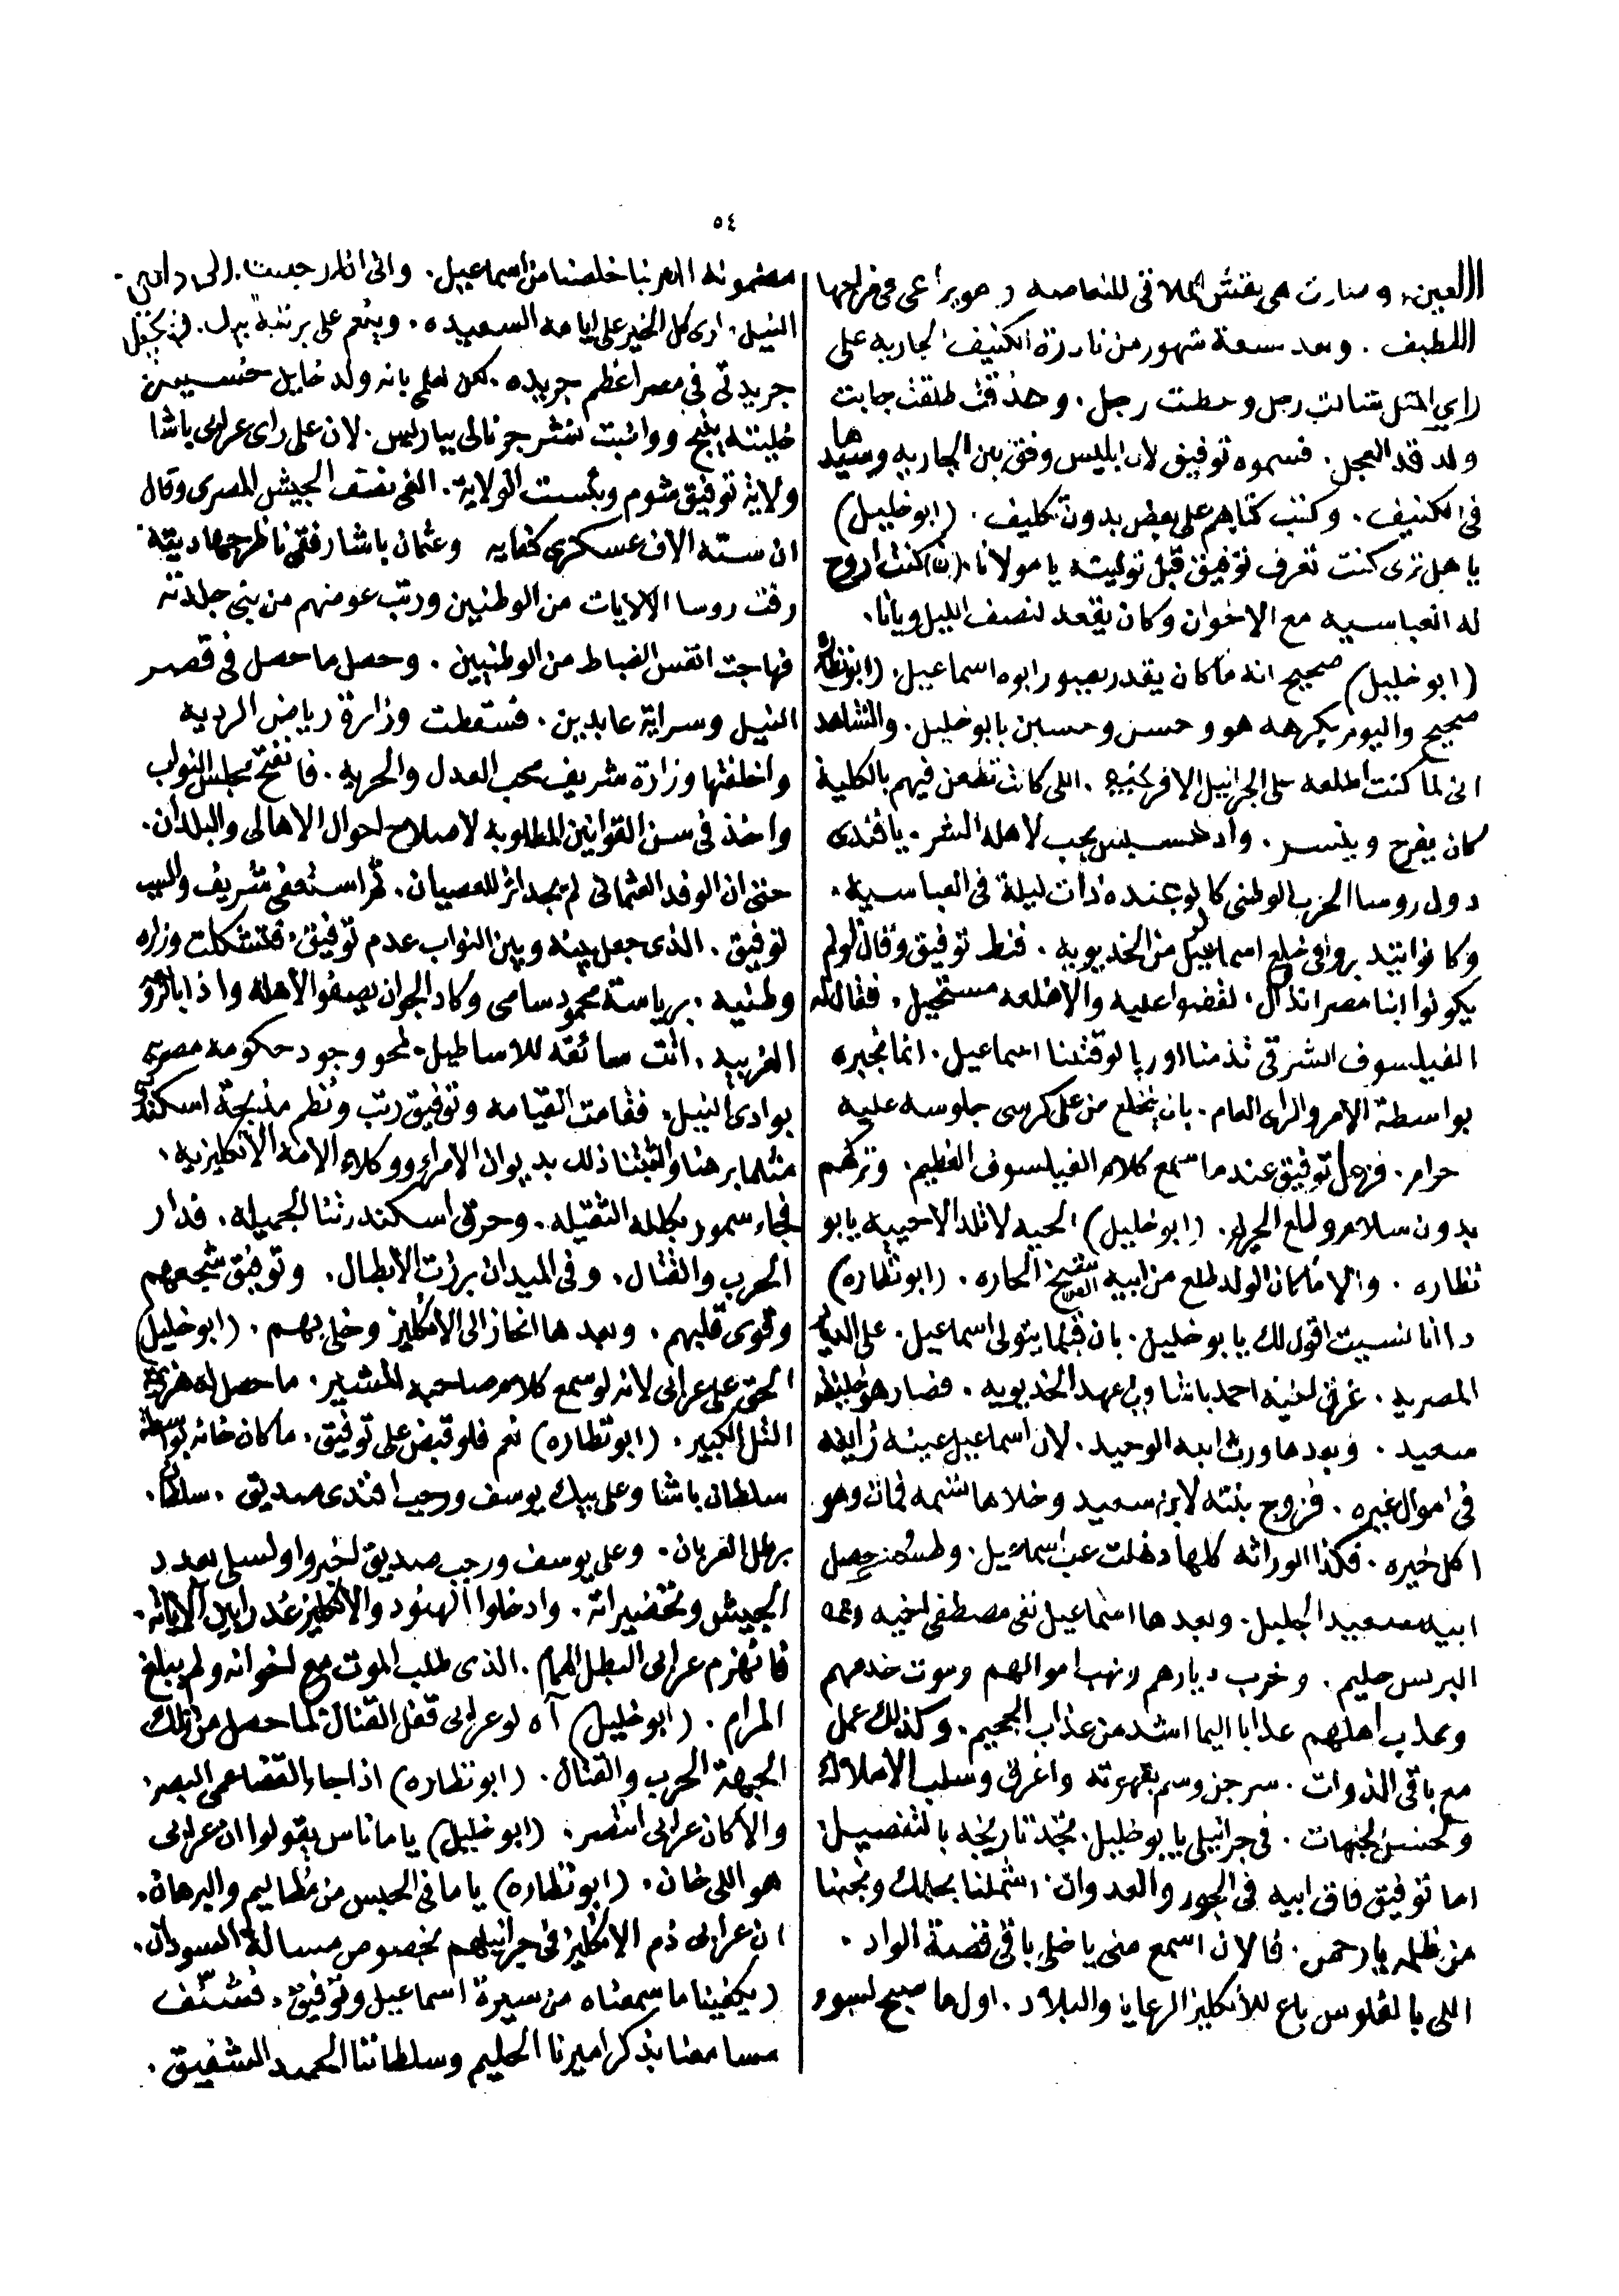 ٥٤
اللعين، وصارت هي بقتش الملاقي للتعاصه وهو يراعي في مزاجها
اللطيف . وبعد سبعة شهور من نادرة الكنيف الجاريه على
راي المثل شالت رجل وحطت رجل . وحذفت طلقت جابت
ولد قد العجل . فسموه توفيق لان ابليس وفق بين الجاريه وسيدها
في الكنيف . وكتب كتابهم على بعض بدون تكليف . (ابو خليل)
يا هل ترى كنت تعرف توفيق قبل توليته يا مولانا . (ن) كنت اروح
له العباسيه مع الاخوان وكان يقعد لنصف الليل ويانا .
(ابو خليل) صحيح انه ما كان يقدر بصبور ابوه اسماعيل . (ابو نظاره)
صحيح واليوم يكرهه هو وحسن وحسين يا بو خليل . والشاهد
اني لما كنت اطلعه على الجرانيل الافرنجيه . اللي كانت تطعن فيهم بالكلية
كان يفرح وينسر . واد خسيس يحب لاهله الشر . يا فندى
دول روسا الحزب الوطني كانوا عنده ذات ليلة في العباسية .
وكانوا بيتدبروا في خلع اسماعيل من الخديويه . فنط توفيق وقال لو لم
يكونوا ابنا مصر انذال . لقضوا عليه والا خلعه مستحيل . فقال له
الفيلسوف الشرقي تذمنا اوربا لو قتلنا اسماعيل . انما نجبره
بواسطة الامر والراي العام . بان ينخلع من على كرسي جلوسه عليه
حرام . فزعل توفيق عندما سمع كلام الفيلسوف العظيم . وتركهم
بدون سلام وطلع الحريم . (ابو خليل) الحيه لا تلد الا حييه يا بو
نظاره . والا ما كان الولد طلع من ابيه الحاره . (ابو نظاره)
دا انا نسيت اقول لك يا بو خليل . بان قبلما يتولى اسماعيل . على الديار
المصريه . غرق اخيه احمد باشا ولي عهد الخديويه . فصار هو خليفة
سعيد . وبعدها ورث ابنه الوحيد . لان اسماعيل عينه زايغه
في اموال غيره . فزوج بنته لابن سعيد وخلاها تسمه فمات وهو
اكل خيره . فكذا الوراثه كلها دخلت عب اسماعيل . وطسن حصل
ابيه سعيد الجليل . وبعدها اسماعيل نفى مصطفى اخيه وعمه
البرنس حليم . وخرب ديارهم ونهب اموالهم وموت خدمهم
وعذب اهلهم عذابا اليما اشد من عذاب الجحيم . وكذلك عمل
مع باقي الذوات . سرجن وسم بقهوته واغرق وسلب الاملاك
ولحس الجنيهات . في جرانيلي يا بو خليل . تجد تاريخه بالتفصيل
اما توفيق فاق ابيه في الجور والعدوان . اشملنا بحلمك ونجينا
من ظلمه يا رحمن . فالان اسمع مني يا خلي باقي قصة الواد .
اللي بالفلوس باع للانكليز الرعايا والبلاد . اول ما صبح لسوء
مضمونه الله ربنا خلصنا من اسماعيل . واني اذا رجعت الى وادي
النيل . ارى كل الخير على ايامه السعيده . وينعم علي برتبة بيك . في يجعل
جريدتي في مصر اعظم جريده . لكن لعلمي بانه ولد خاين خسيس
خليته ينبح وواظبت نشر جرنالي بباريس . لان على راى عرابي باشا
ولاية توفيق مشوم وبئست الولاية . الغى نصف الجيش المصرى وقال
ان سته الاف عسكرى كفايه وعثمان باشا رفقي ناظر جهاديته
رفت روسا الالايات من الوطنيين ورتب عوضهم من بني جلدته
فهاجت انفس الضباط من الوطنيين . وحصل ما حصل في قصر
النيل وسراية عابدين . فسقطت وزارة رياض الرديه
واخلفتها وزارة شريف محب العدل والحريه . فانفتح مجلس النواب
واخذ في سن القوانين المطلوبه لاصلاح احوال الاهالي والبلدان .
حتى ان الوفد العثماني لم يجد اثر للعصيان . ثم استعفى شريف والسبب
توفيق . الذى جعل بينه وبين النواب عدم توفيق . فتشكلت وزاره
وطنيه . برياسة محمود سامي وكاد الجو ان يصفو الاهله واذا بالدول
الغربيه . اتت سائقه للاساطيل . لمحو وجود حكومه مصريه
بوادى النيل . فقامت القيامه وتوفيق رتب ونظم مذبحة اسكندريه
مثلما برهنا واثبتنا ذلك بديوان الامرا ووكلاء الامة الانكليزيه .
فجاء سيمور بكلله الثقيله . وحرق اسكندرتنا الجميله . فدار
الحرب والقتال . وفي الميدان برزت الابطال . وتوفيق شجعهم
وقوى قلبهم . وبعدها انحاز الى الانكليز وخلى بهم . (ابو خليل)
الحق على عرابي لانه لو سمع كلام صاحبه المشير . ما حصل له هزيمة
التل الكبير . (ابو نظاره) نعم فلو قبض على توفيق . ما كان خانه بواسطة
سلطان باشا وعلي بيك يوسف ورجب افندى صديق . سلطان
برطل العربان . وعلي يوسف ورجب صديق اخبروا ولسلي بعدد
الجيش وتحضيراته . وادخلوا الهنود والانكليز غدرا بين آلاياته .
فانهزم عرابي البطل الهمام . الذى طلب الموت مع اخوانه ولم يبلغ
المرام . (ابو خليل) آه لو عرابي قفل القنال لما حصل من تلك
الجهة الحرب والقتال . (ابو نظاره) اذا جاء القضا عمي البصر .
والا كان عرابي انتصر . (ابو خليل) ياما ناس يقولوا ان عرابي
هو اللي خان . (ابو نظاره) ياما في الحبس من مظاليم والبرهان .
ان عرابي ذم الانكليز في جرانيلهم بخصوص مسالة السودان .
(يكفينا ما سمعناه من سيرة اسماعيل وتوفيق . فشنف
مسامعنا بذكر اميرنا الحليم وسلطاننا الحميد الشفيق .